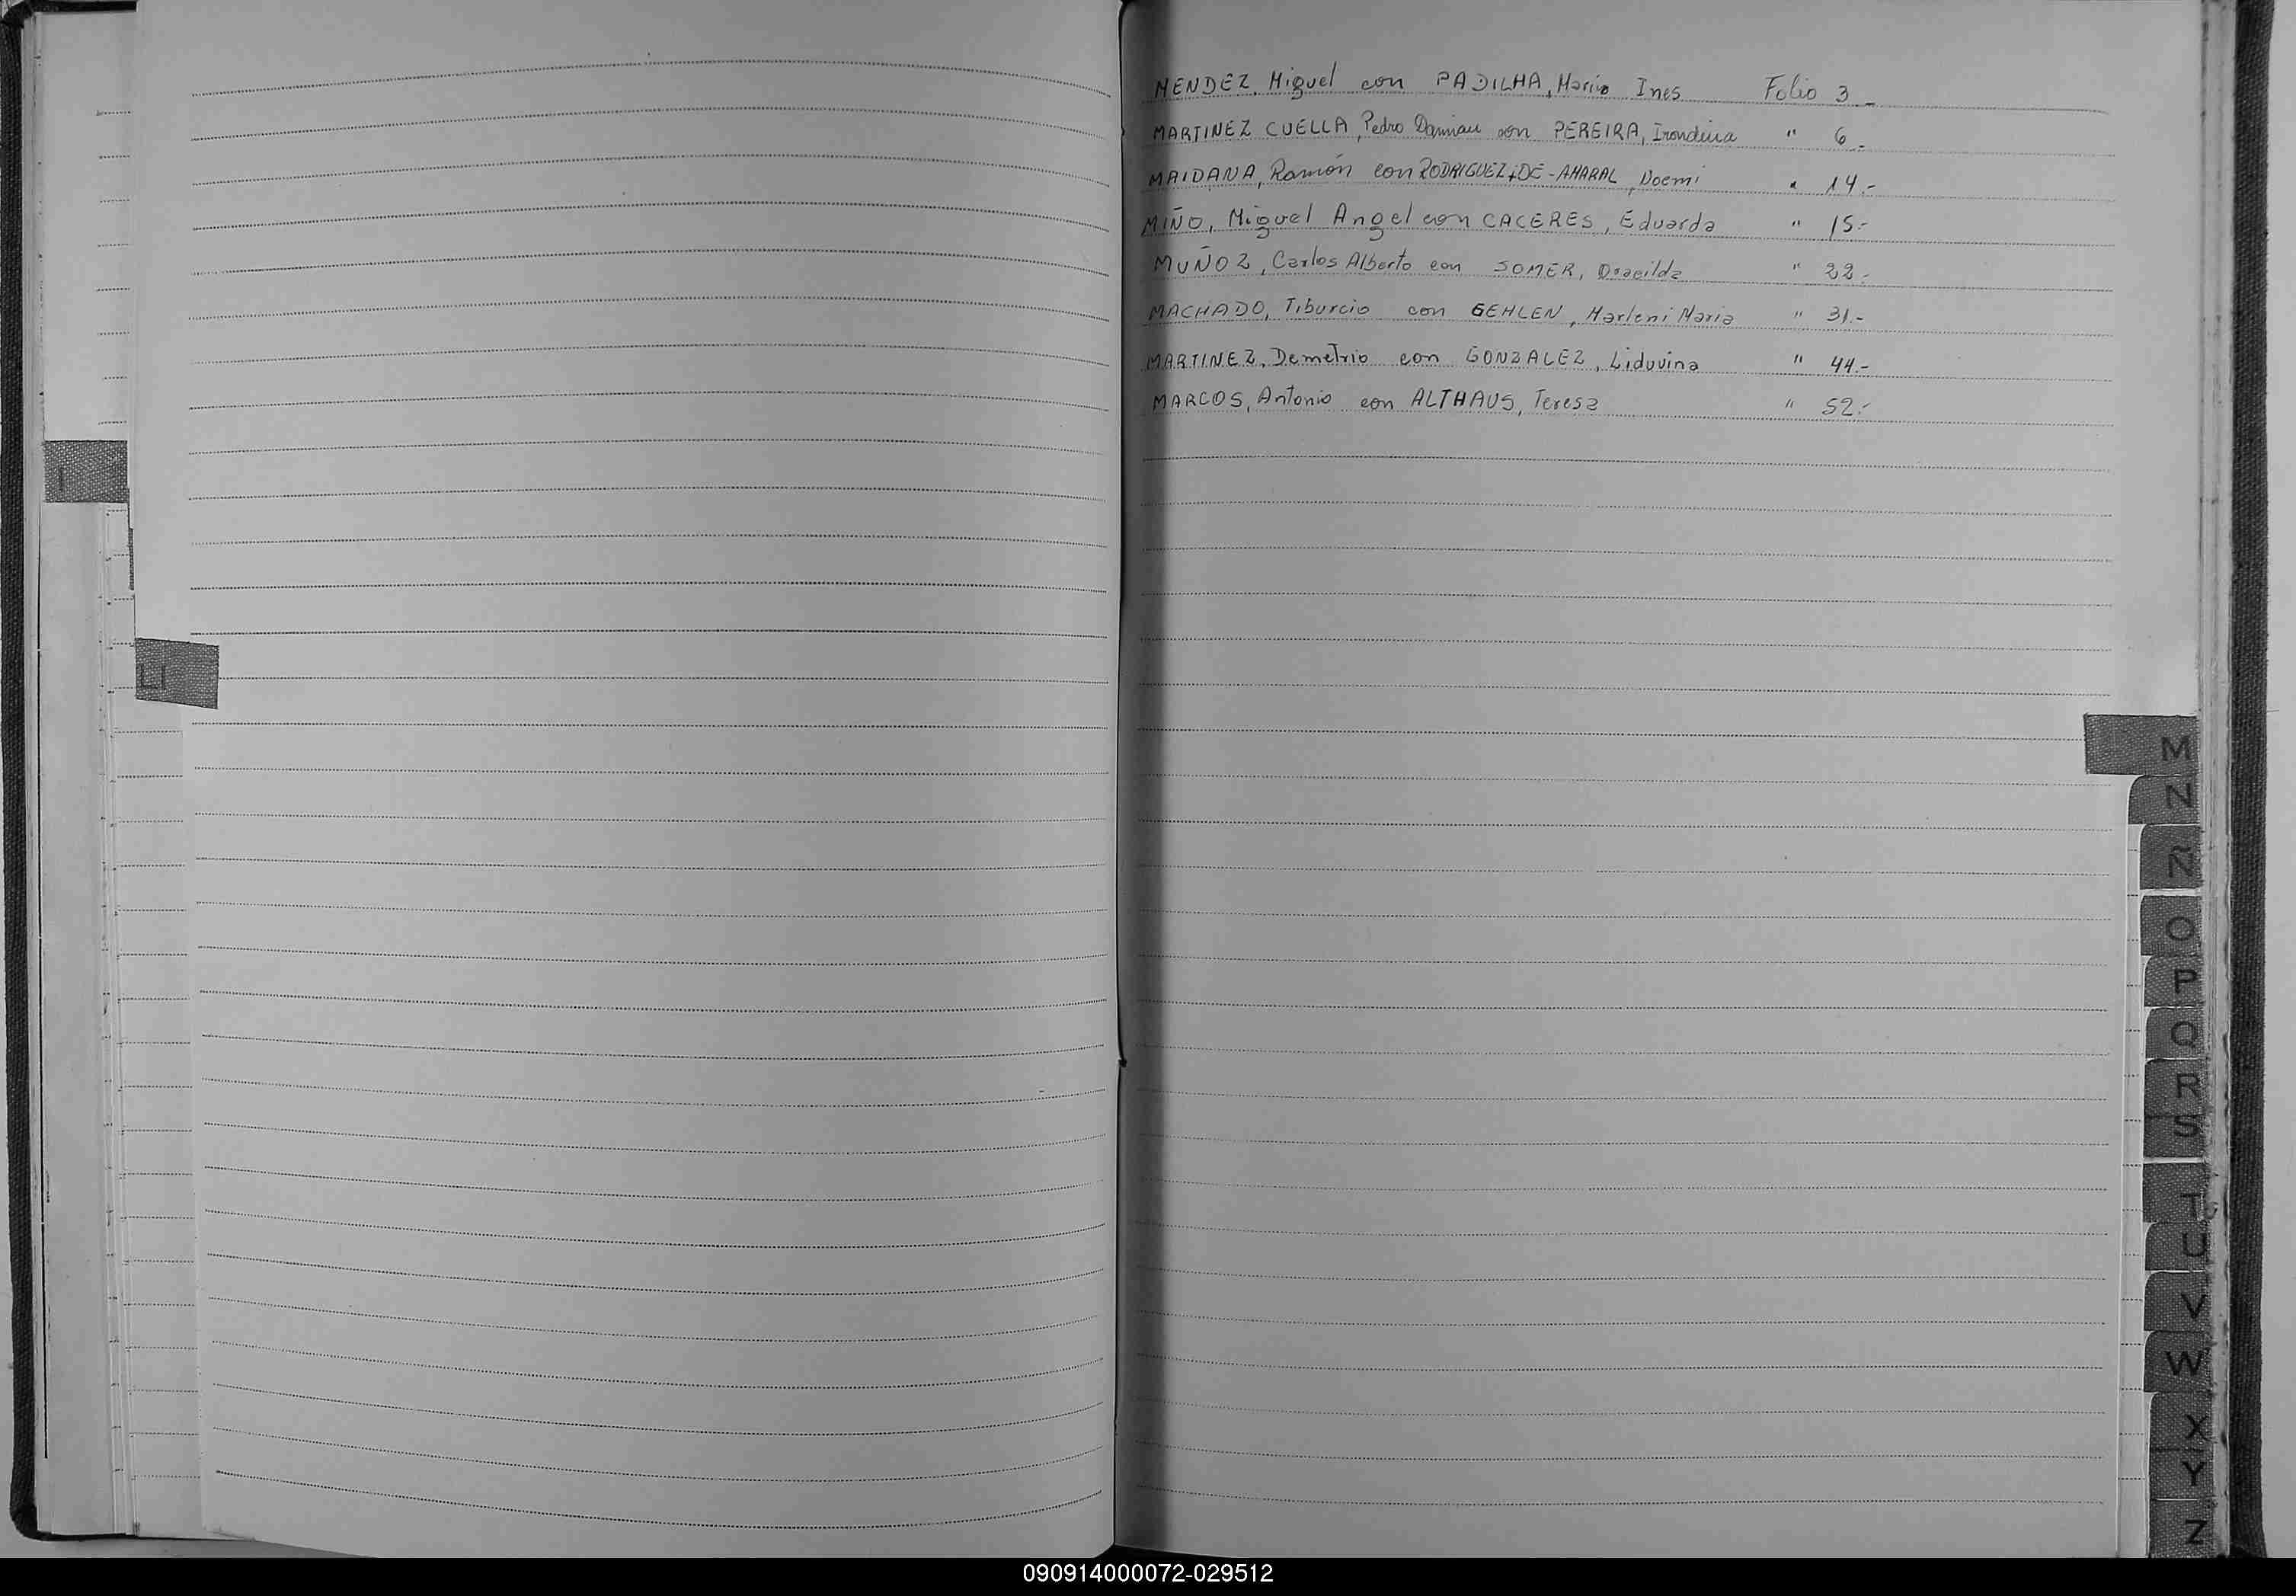 MENDEZ, Miguel con PADILHA, Maria Ines Folio 3-
MARTINEZ CUELLA, Pedro Damian con PEREIRA, Irondina " 6.-
MAIDANA, Ramón con RODRIGUEZ DE-AMARAL, Noemi " 14.-
MIÑO, Miguel Angel con CACERES, Eduarda " 15.-
MUÑOZ, Carlos Alberto con SOMER, " 22.-
MACHADO, Tiburcio con GEHLEN, Marleni Maria " 31.-
MARTINEZ, Demetrio con GONZALEZ, Liduvina " 44.-
MARCOS, Antonio con ALTHAUS, Teresa " 52.-
I
Ll
M
N
Ñ
O
P
Q
R
S
T
U
V
W
X
Y
Z
090914000072-029512